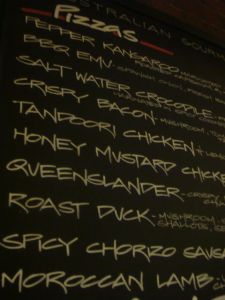 AUSTRALIAN GOURM
Pizzas
PEPPER KANGAROO
BBQ EMU
SALT WATER CROCODILE
CRISPY BACON - MUSHROOM, TOM
TANDOORI CHICKEN
HONEY MUSTARD CHICKEN
QUEENSLANDER - CRISP
ROAST DUCK - MUSHROOM
SHALLOTS, SE
SPICY CHORIZO SAUSA
MOROCCAN LAMB -